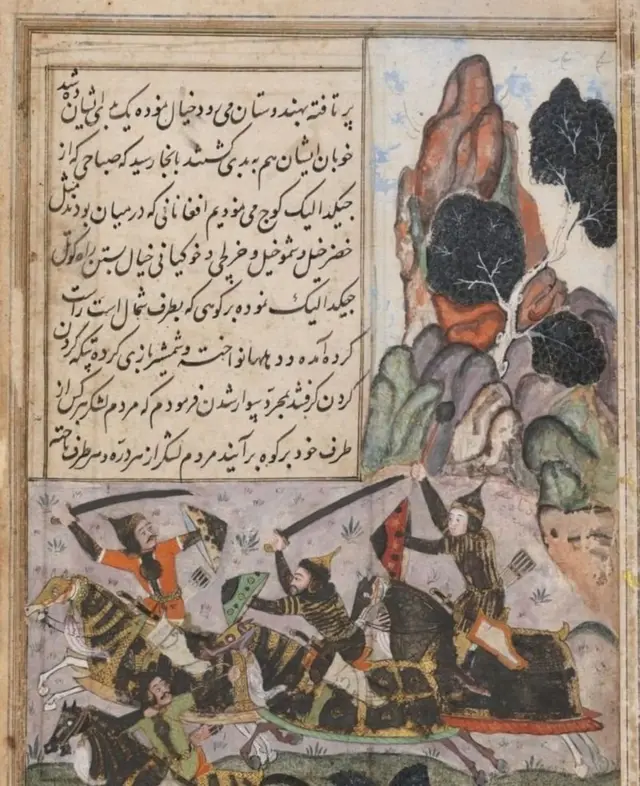 پرتافته بهندوستان می‌رود خیال نموده یک بدی ایشان ده شد
خوبان ایشان هم به بدی گشتند بانجا رسید که صباحی که از
جیکدالیک کوچ می‌نمودیم افغانانی که در میان بودند مثل
خضرخیل و شموخیل و خرلجی و خوکیانی خیال بستن راه کوتل
جیکدالیک نموده بر کوهی که بطرف شمال است راست
کرده آمده و دهلها نواخته و شمشیر بازی کرده تیکه کردن
کردن گرفتند بمجرد سوار شدن فرمودم که مردم لشکر هر کس از
طرف خود بر کوه برآیند مردم لشکر از هر دره و هر طرف تاخته